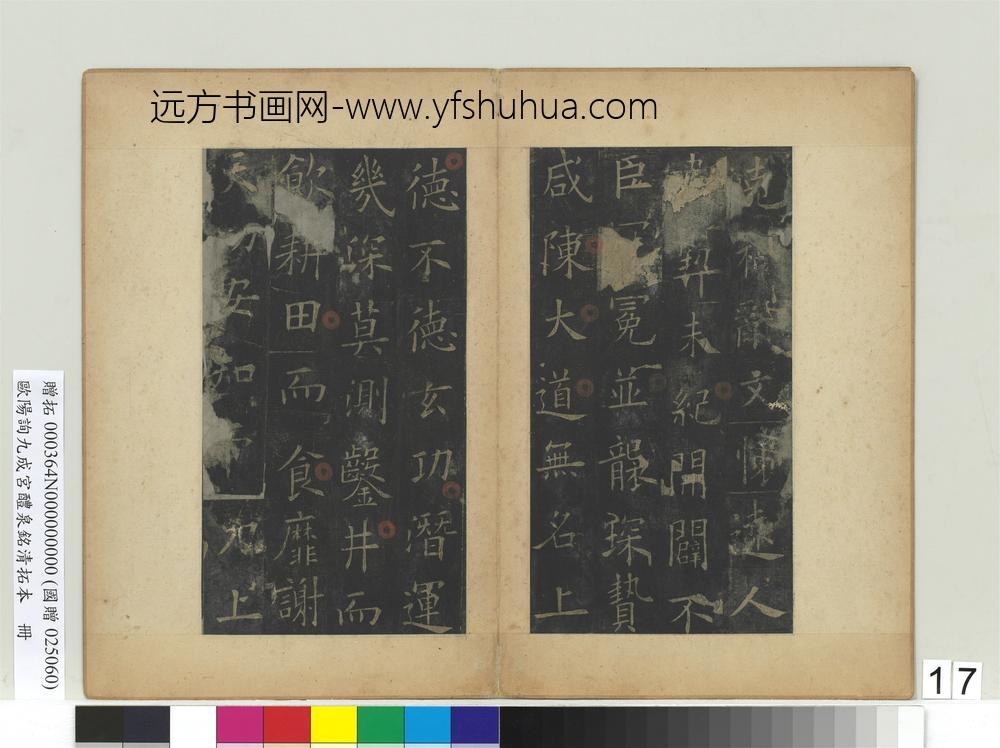 远方书画网-www.yfshuhua.com
文遠人
契未紀開闢不
臣冕並襲琛贄
咸陳大道無名上
德不德玄功潛運
幾深莫測鑿井而
飲耕田而食靡謝
天安知上
贈拓 000364N000000000 (國贈 025060)
歐陽詢九成宮醴泉銘清拓本 冊
17